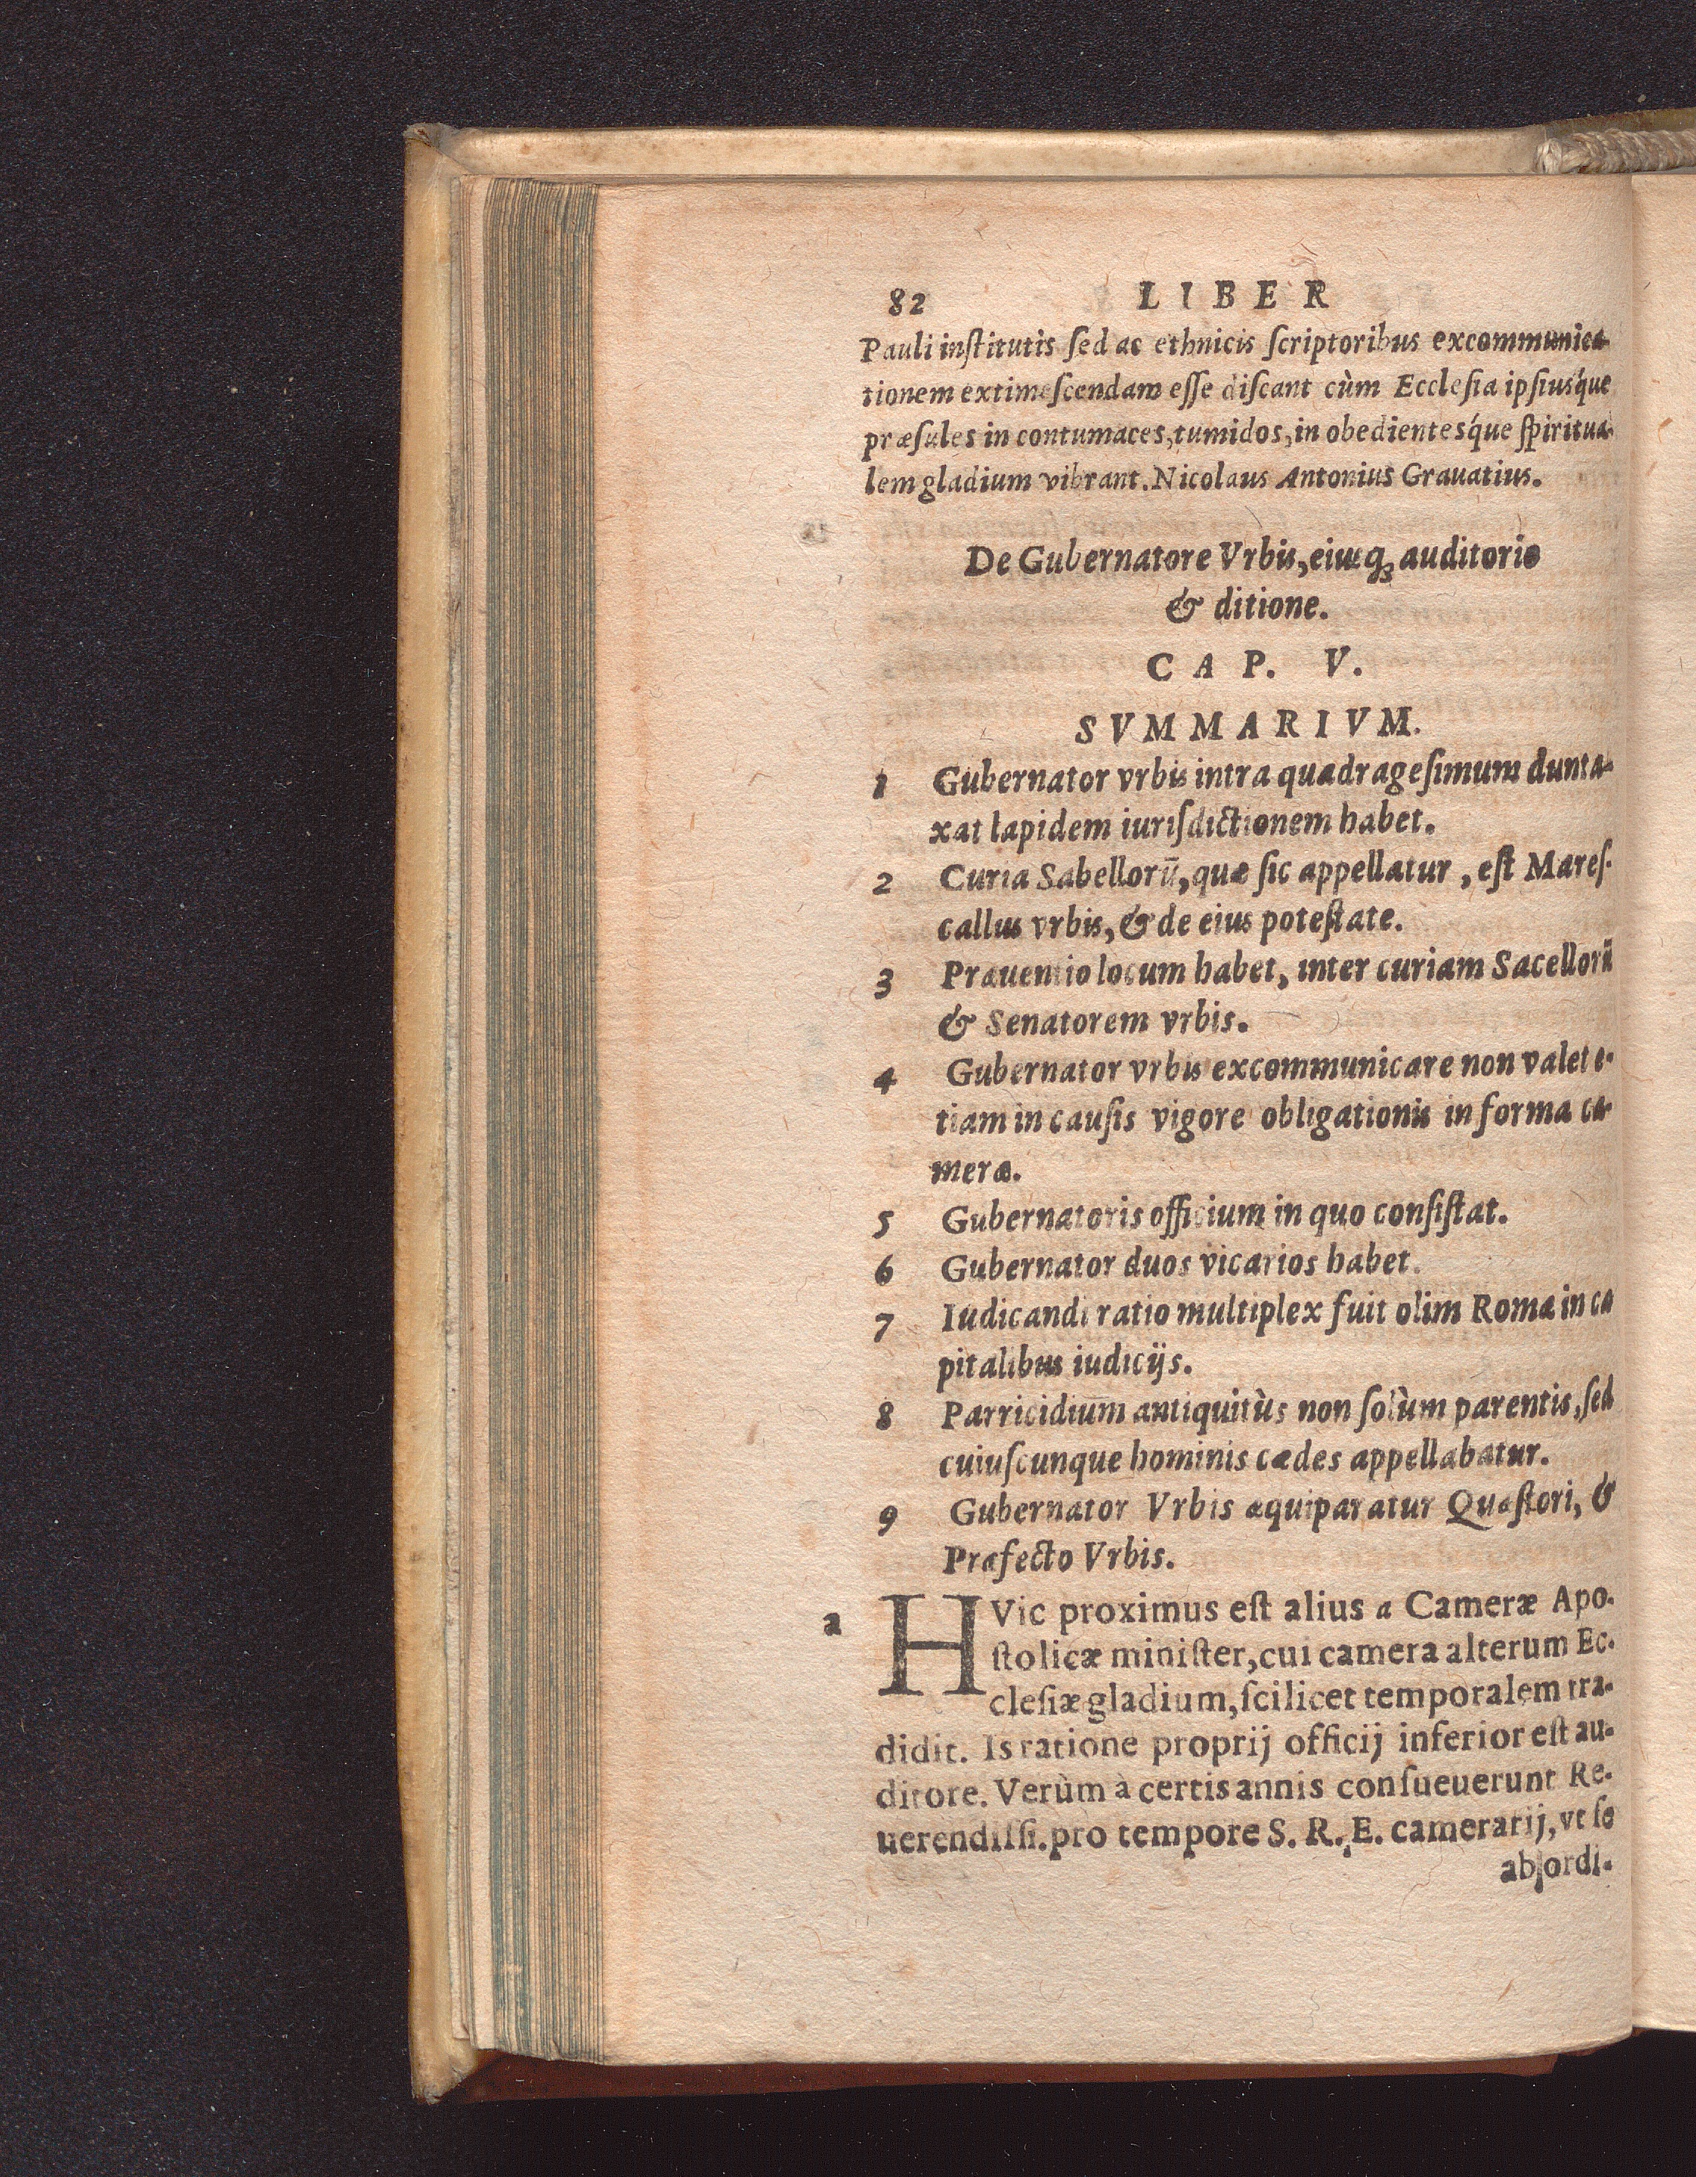 82 LIBER
Pauli inſtitutis ſed ac ethnicis ſcriptoribus excommunica-
tionem extimeſcendam eſſe diſcant cùm Eccleſia ipſiusq́ue
præſules in contumaces, tumidos, in obedientesq́ue ſpiritua-
lem gladium vibrant. Nicolaus Antonius Grauatius.
De Gubernatore Vrbis, eiusq; auditorio
& ditione.
CAP. V.
SVMMARIVM.
1 Gubernator vrbis intra quadrageſimum dunta-
xat lapidem iuriſdictionem habet.
2 Curia Sabellorū, quæ ſic appellatur, eſt Mareſ-
callus vrbis, & de eius poteſtate.
3 Præuentio locum habet, inter curiam Sacellorū
& Senatorem vrbis.
4 Gubernator vrbis excommunicare non valet e-
tiam in cauſis vigore obligationis in forma ca-
meræ.
5 Gubernatoris officium in quo conſiſtat.
6 Gubernator duos vicarios habet.
7 Iudicandi ratio multiplex fuit olim Romæ in ca
pitalibus iudicijs.
8 Parricidium antiquitùs non ſolùm parentis, ſed
cuiuſcunque hominis cædes appellabatur.
9 Gubernator Vrbis æquiparatur Quæſtori, &
Præfecto Vrbis.
a HVic proximus eſt alius a Cameræ Apo-
ſtolicæ miniſter, cui camera alterum Ec-
cleſiæ gladium, ſcilicet temporalem tra-
didit. Is ratione proprij officij inferior eſt au-
ditore. Verùm à certis annis conſueuerunt Re-
uerendiſſi. pro tempore S. R. E. camerarij, vt ſe
ab ordi-